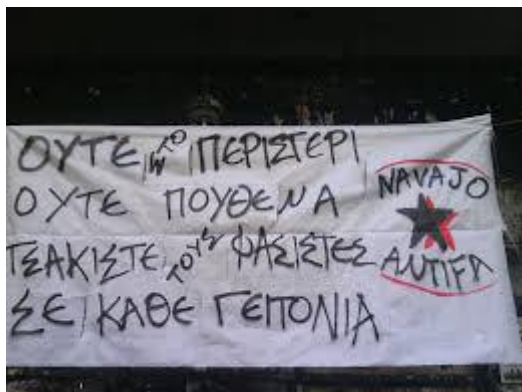 ΟΥΤΕ ΣΤΟ ΠΕΡΙΣΤΕΡΙ
ΟΥΤΕ ΠΟΥΘΕΝΑ
ΤΣΑΚΙΣΤΕ ΤΟΥΣ ΦΑΣΙΣΤΕΣ
ΣΕ ΚΑΘΕ ΓΕΙΤΟΝΙΑ
NAVAJO
ANTIFA